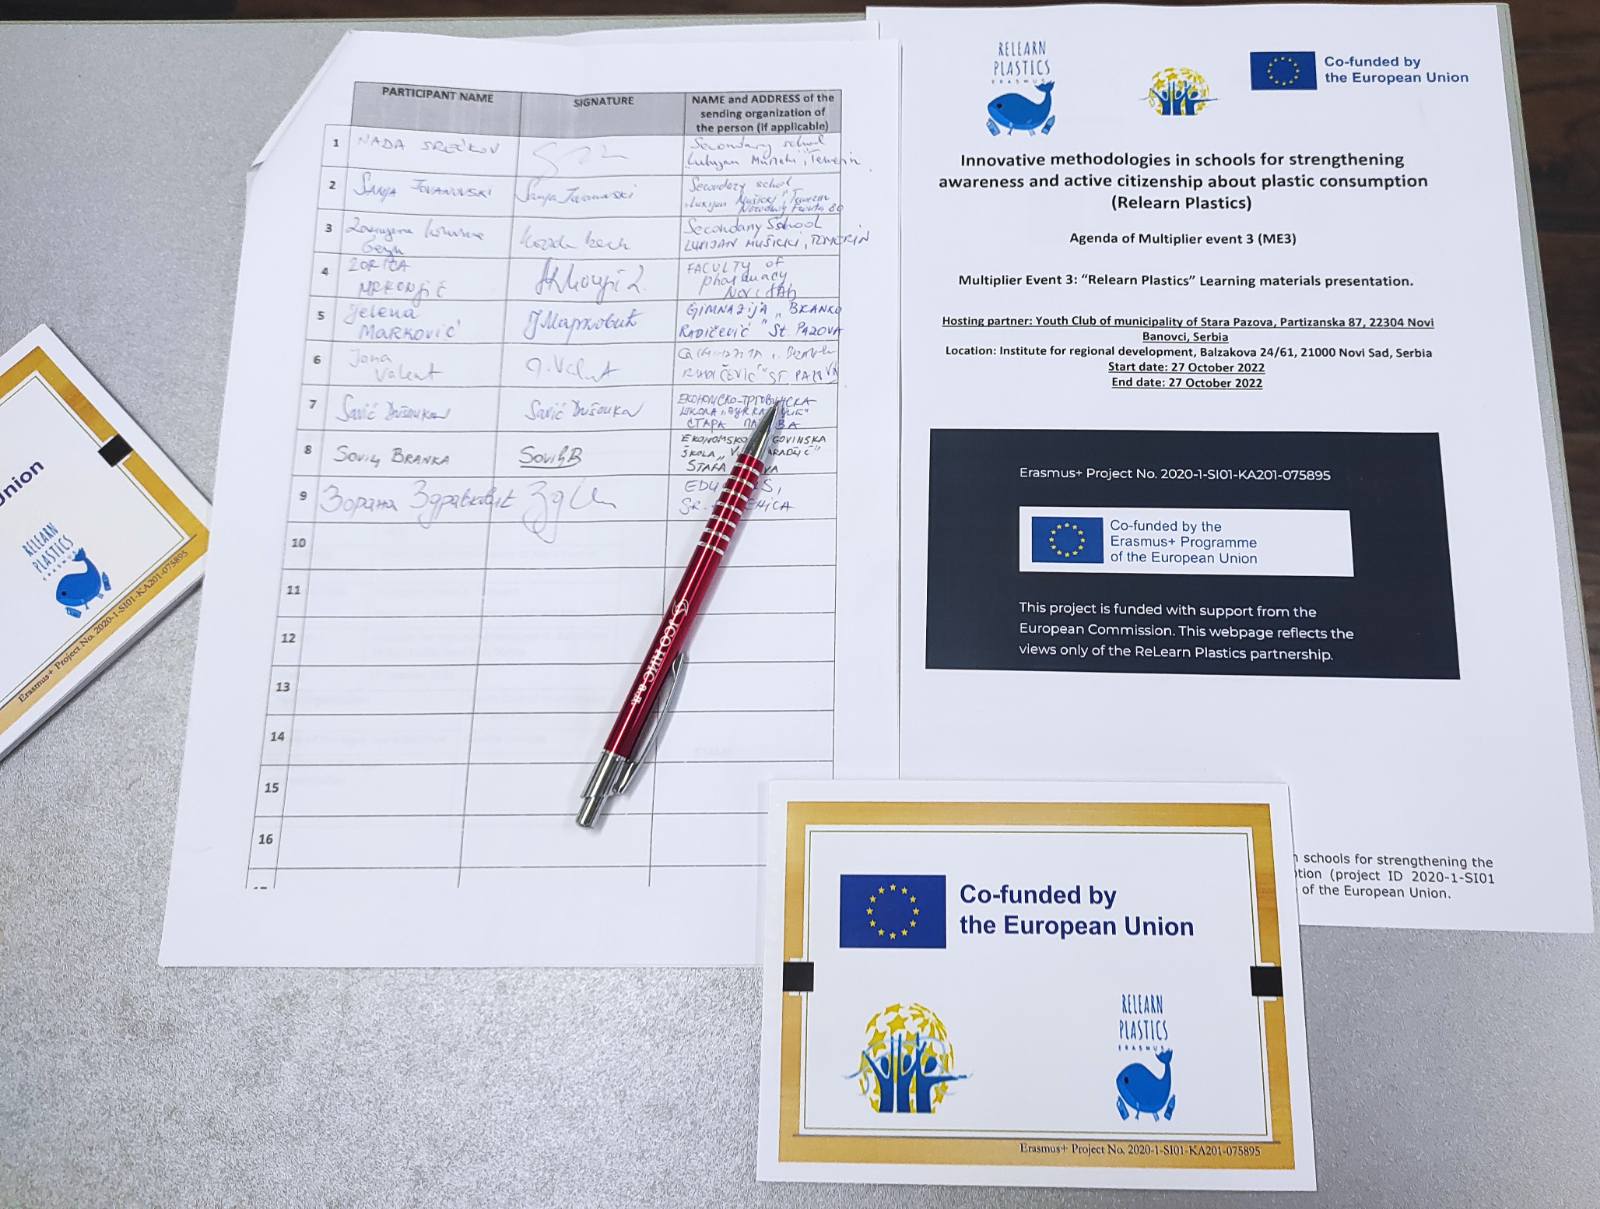 PARTICIPANT NAME
SIGNATURE
NAME and ADDRESS of the
sending organization of
the person (if applicable)
1
NADA SREĆKOV
Secondary school
2
SANJA JOVANOVSKI
Sanja Jovanovski
Secondary school
3
Secondary School
LUKIJAN MUŠICKI, TEMERIN
4
ZORICA
MRKONJIĆ
FACULTY of
pharmacy
NOVI SAD
5
Jelena
Marković
JМарковић
GIMNAZIJA „BRANKO
RADIČEVIĆ" ST. PAZOVA
6
Valent
J. Valent
7
Savić Dušanka
Savić Dušanka
ЕКОНОМСКО-ТРГОВИНСКА
ШКОЛА
СТАРА
8
SOVILJ BRANKA
Sovilj B
ŠKOLA
9
Зорана Здравковић
10
11
12
13
14
15
16
ЈСО НИС а.д.
RELEARN
PLASTICS
ERASMUS+
Co-funded by
the European Union
Innovative methodologies in schools for strengthening
awareness and active citizenship about plastic consumption
(Relearn Plastics)
Agenda of Multiplier event 3 (ME3)
Multiplier Event 3: “Relearn Plastics” Learning materials presentation.
Hosting partner: Youth Club of municipality of Stara Pazova, Partizanska 87, 22304 Novi
Banovci, Serbia
Location: Institute for regional development, Balzakova 24/61, 21000 Novi Sad, Serbia
Start date: 27 October 2022
End date: 27 October 2022
Erasmus+ Project No. 2020-1-SI01-KA201-075895
Co-funded by the
Erasmus+ Programme
of the European Union
This project is funded with support from the
European Commission. This webpage reflects the
views only of the ReLearn Plastics partnership.
schools for strengthening the
(project ID 2020-1-SI01
of the European Union.
Co-funded by
the European Union
RELEARN
PLASTICS
ERASMUS+
Erasmus+ Project No. 2020-1-SI01-KA201-075895
RELEARN
PLASTICS
ERASMUS+
Erasmus+ Project No. 2020-1-SI01-KA201-075895